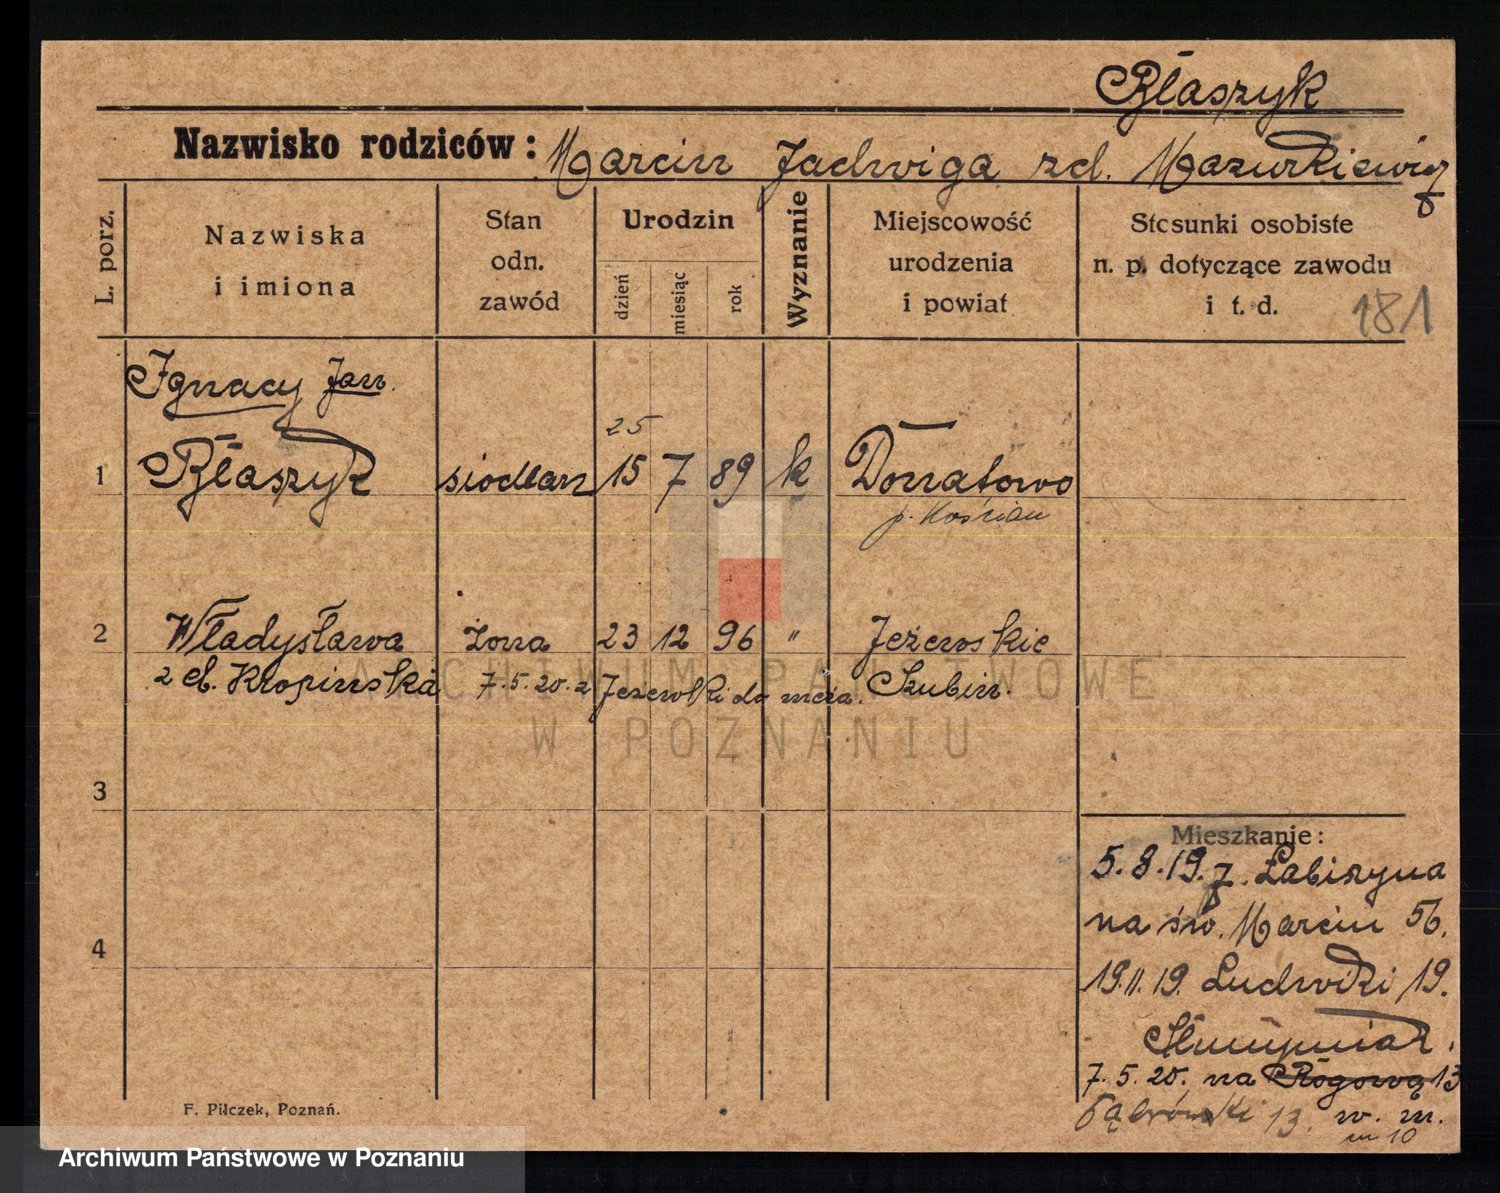 Błaszyk
Nazwisko rodziców: Marcin Jadwiga zd. Mazurkiewicz
L. porz.
Nazwiska
i imiona
Stan
odn.
zawód
Urodzin
dzień
miesiąc
rok
Wyznanie
Miejscowość
urodzenia
i powiat
Stosunki osobiste
n. p. dotyczące zawodu
i t. d.
181
Ignacy Jan.
25
1 Błaszyk siodlarz 15 7 89 k Donatowo
p. Kościan
2 Władysława żona 23 12 96 " Jeżewskie
z d. Kropińska 7.5.20. z Jeżewski do męża. Szubin.
ARCHIWUM PAŃSTWOWE
W POZNANIU
3
Mieszkanie:
5.8.19. z Łabiszyna
na św. Marcin 56.
4
19.11.19. Ludwiki 19.
7.5.20. na Rogową 13
Dąbrówki 13. w. m.
m 10
F. Pilczek, Poznań.
Archiwum Państwowe w Poznaniu